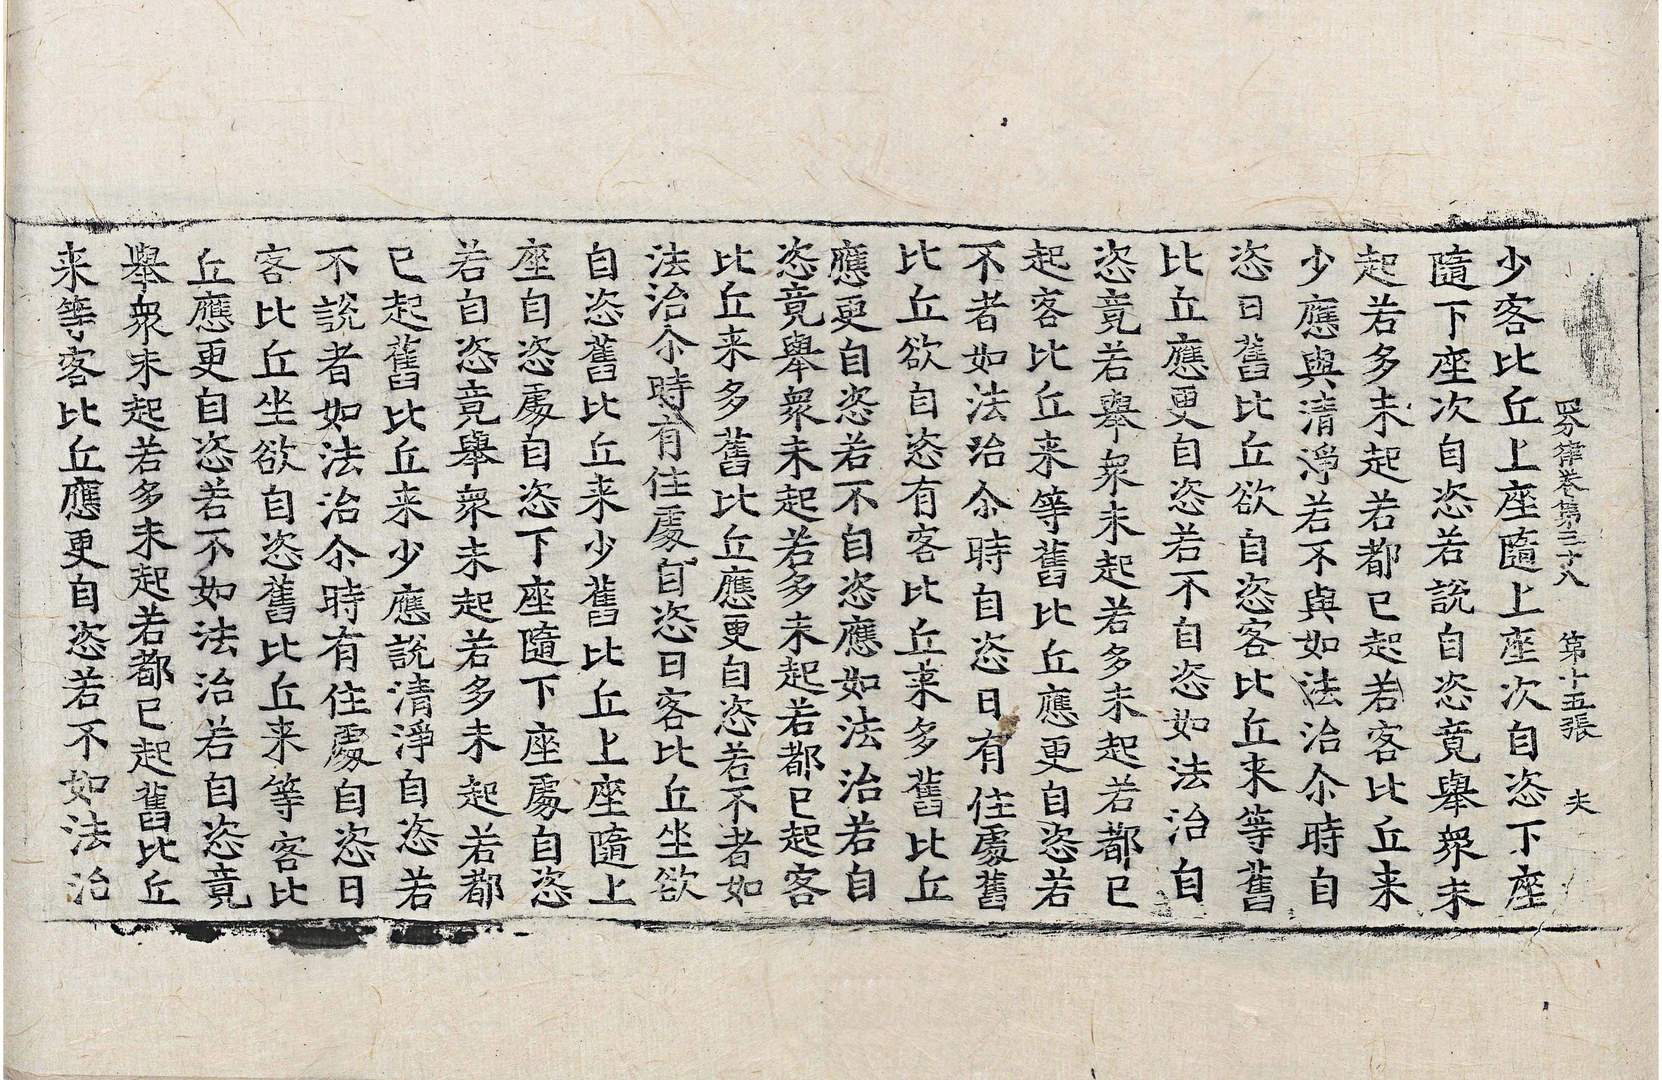 四分律卷第三十八 第十五張 夫
少客比丘上座隨上座次自恣下座
隨下座次自恣若說自恣竟舉衆未
起若多未起若都已起若客比丘来
少應與清淨若不與如法治尒時自
恣日舊比丘欲自恣客比丘来等舊
比丘應更自恣若不自恣如法治自
恣竟若舉衆未起若多未起若都已
起客比丘来等舊比丘應更自恣若
不者如法治尒時自恣日有住處舊
比丘欲自恣有客比丘来多舊比丘
應更自恣若不自恣應如法治若自
恣竟舉衆未起若多未起若都已起客
比丘来多舊比丘應更自恣若不者如
法治尒時有住處自恣日客比丘坐欲
自恣舊比丘来少舊比丘上座隨上
座自恣處自恣下座隨下座處自恣
若自恣竟舉衆未起若多未起若都
已起舊比丘来少應說清淨自恣若
不說者如法治尒時有住處自恣日
客比丘坐欲自恣舊比丘来等客比
丘應更自恣若不如法治若自恣竟
舉衆未起若多未起若都已起舊比丘
来等客比丘應更自恣若不如法治